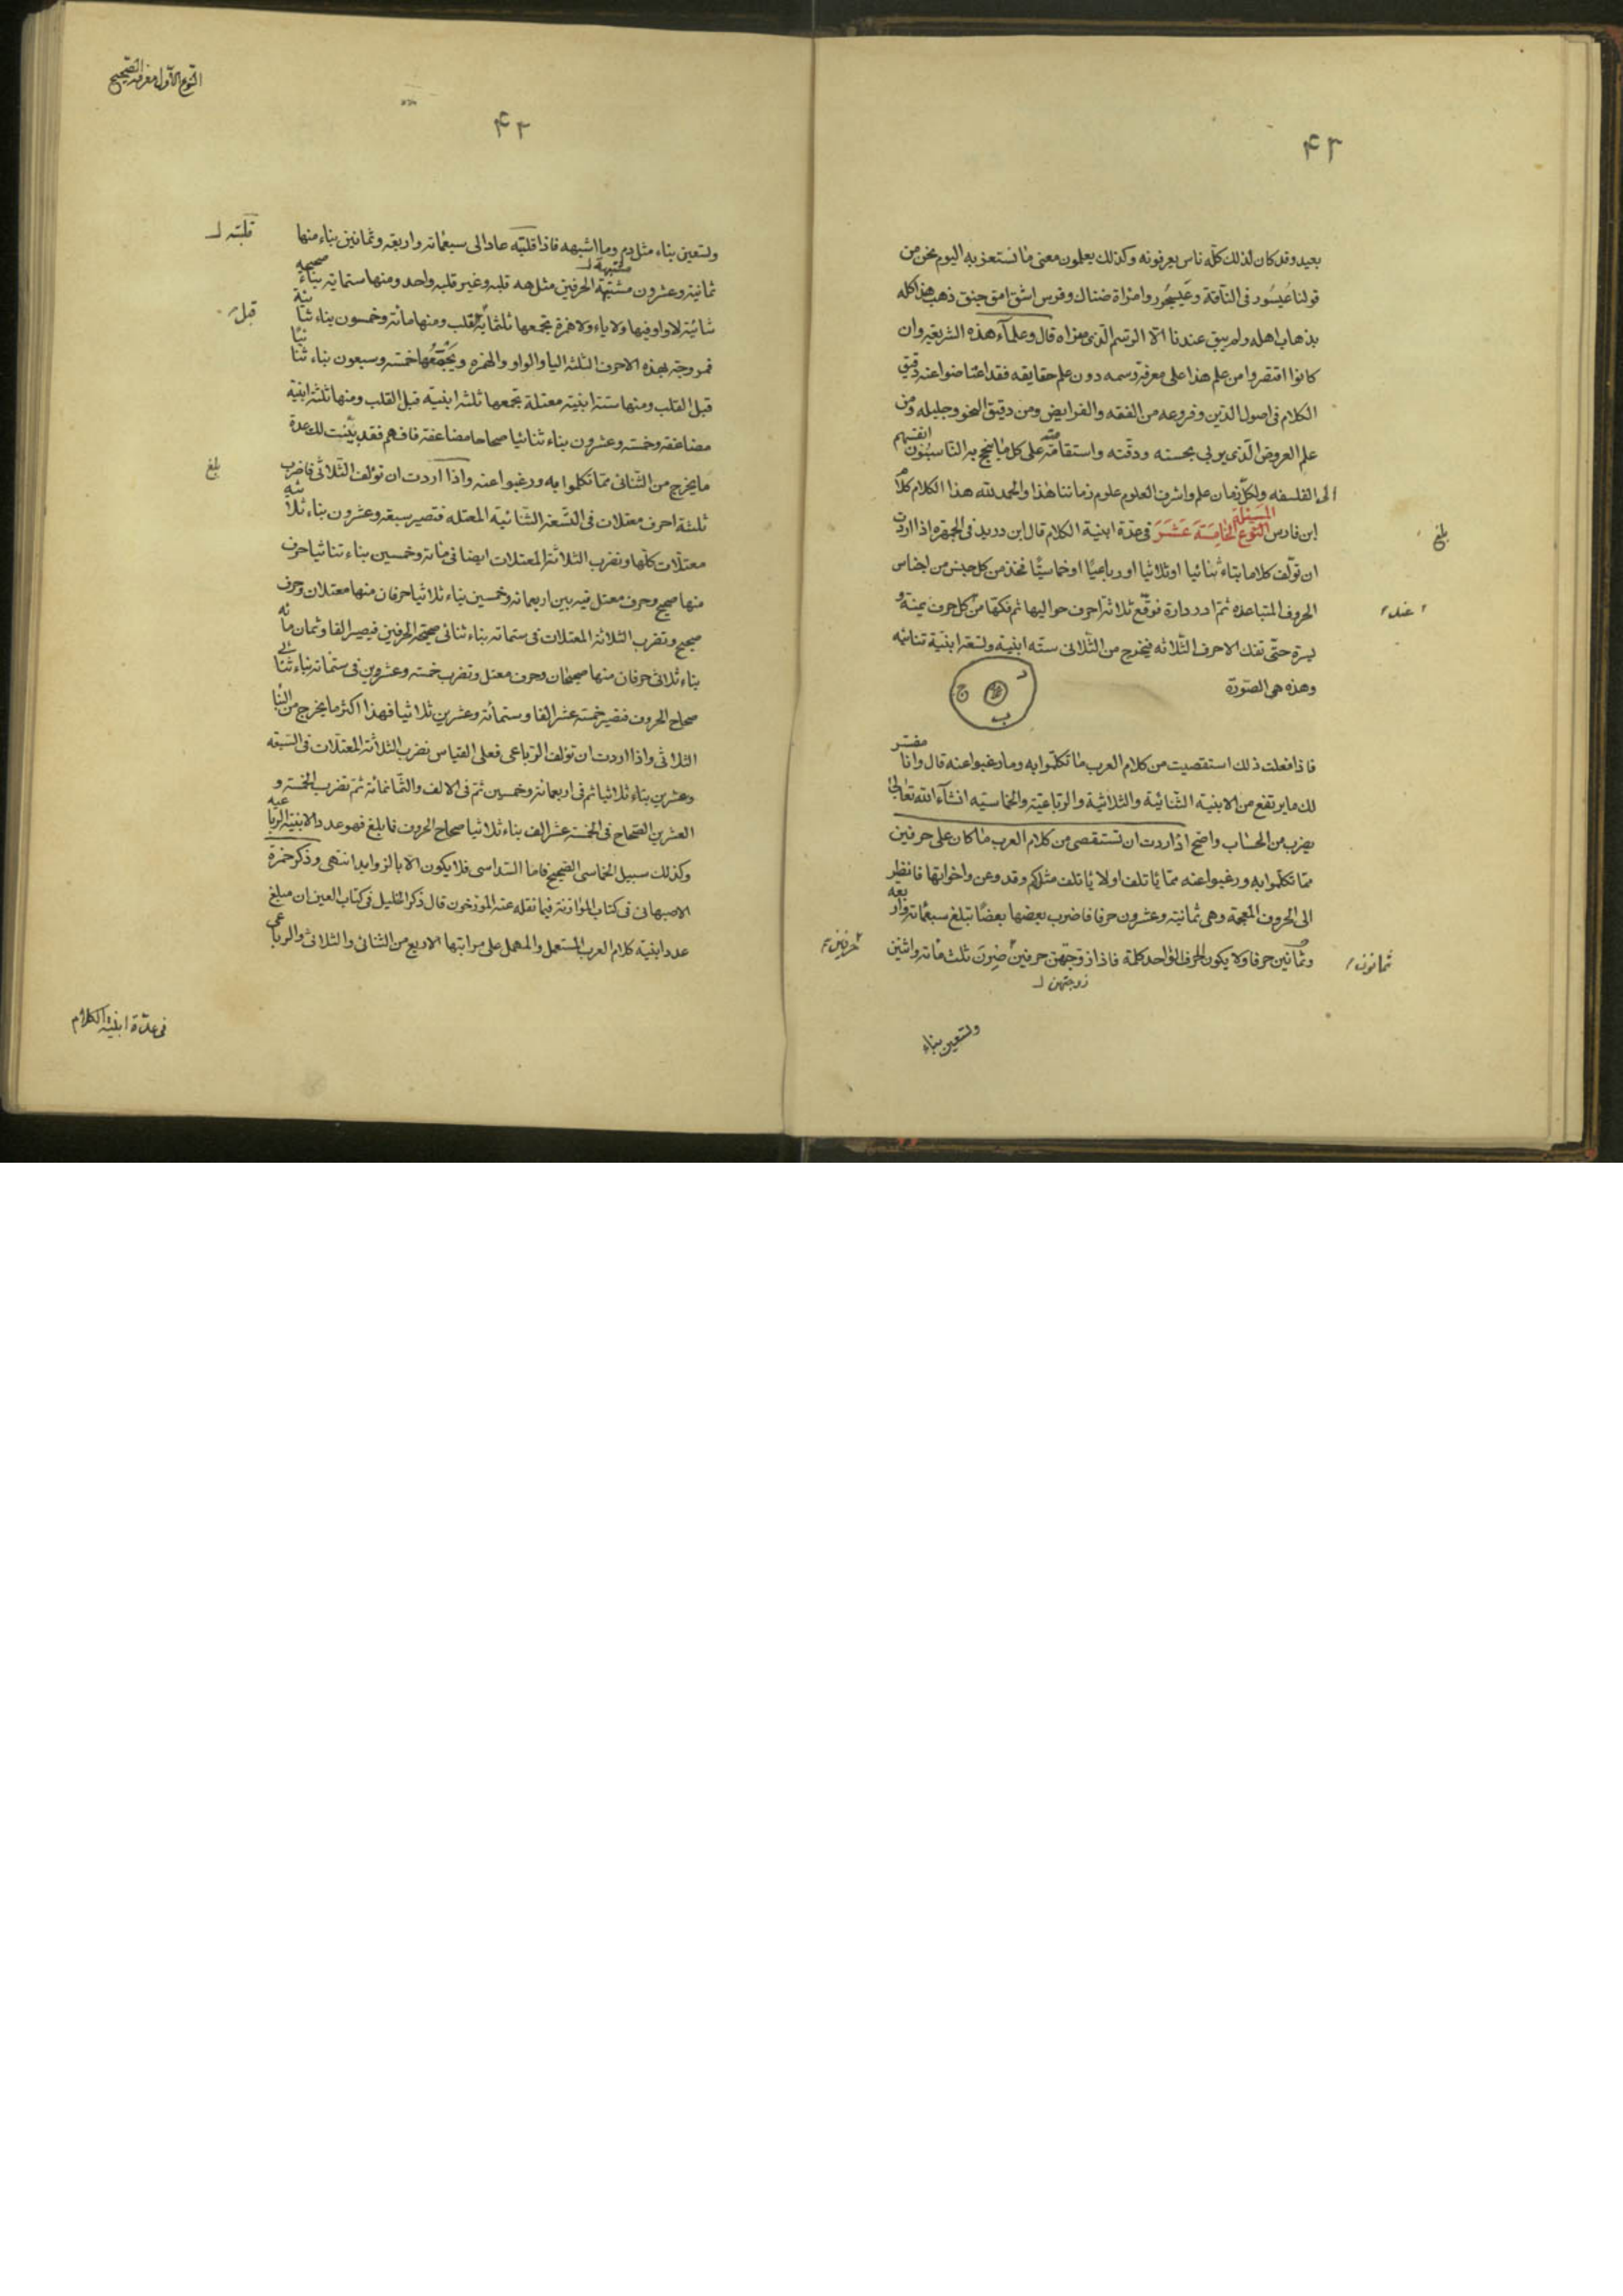 ٤٢
بعيد وقد كان لذلك كلّه ناس يعرفونه وكذلك يعلمون معنى ما نستغربه اليوم نحن من
قولنا عُيسُور فى النّاقة وعَيسجُور وامرأة ضناك وفرس اشق امق خبق ذهب هذا كله
بذهاب اهله ولم يبق عندنا الّا الرّسم الّذى نراه قال وعلمآء هذه الشريعة وان
كانوا اقتصروا من علم هذا على معرفة رسمه دون علم حقايقه فقد اعتاضوا عنه دقيق
الكلام فى اصول الدّين وفروعه من الفقه والفرايض ومن دقيق النحو وجليله ومن
علم العروض الّذى يربى بحسنه ودقّته واستقامته على كل ما يبجح به النّاسبون انفسهم
الى الفلسفه ولكلّ زمان علم واشرف العلوم علوم زماننا هذا والحمد لله هذا الكلام كلام
ابن فارس المسئلة الخامِسَة عَشَرَ فى عدّة ابنية الكلام قال ابن دريد فى الجمهره اذا اردت
ان تولّف كلاما بناء ثنائيا او ثلاثيا او رباعيّا او خماسيّا فخذ من كل جنس من اجناس
الحروف المتباعده ثم ادر دارة فوقّع ثلاثة احرف حواليها ثم فكها من كل حرف يمنة و
يسرة حتّى تفك الاحرف الثّلاثه فيخرج من الثّلاثى ستّه ابنية وتسعة ابنية ثنائيه
وهذه هى الصّورة
فاذا فعلت ذلك استقصيت من كلام العرب ما تكلّموا به وما رغبوا عنه قال وانا مفسّر
لك ما يرتفع من الابنيه الثّنائية والثلاثية والرّباعيّه والخماسيّه انشآء الله تعالى
بضرب من الحساب واضح اذا اردت ان تستقصى من كلام العرب ما كان على حرفين
ممّا تكلّموا به ورغبوا عنه ممّا ياتلف او لا ياتلف مثل كم وقد وعن واخواتها فانظر
الى الحروف المعجمة وهى ثمانية وعشرون حرفا فاضرب بعضها بعضًا تبلغ سبعمائة واربعه
وثمانين حرفا ولا يكون الحرف الواحد كلمة فاذا ازوجتهن حرفين حرفين صرن ثلث مائة واثنين
زوجتهن
بلغ
عند
ثمانون
حرفين
وتسعين بناء
٤٢
النّوع الاوّل معرفة الصّحيح
وتسعين بناء مثل دم وما اشبهه فاذا قلبته عادا الى سبعمائة واربعة وثمانين بناء منها
ثمانية وعشرون مشتبهة الحرفين مثل هه قلبه وغير قلبه واحد ومنها ستماية بناء صحيحه
ثنائيّة لا واو فيها ولا ياء ولا همزة يجمعها ثلثماية قبل القلب ومنها مائة وخمسون بناء ثنائية
ممزوجة بهذه الاحرف الثلثه اليا والواو والهمزه ويجمعها خمسة وسبعون بناء ثنائيا
قبل القلب ومنها ستة ابنية معتلة يجمعها ثلثة ابنية قبل القلب ومنها ثلثة ابنية
مضاعفة وخمسة وعشرون بناء ثنائيا صحاحا مضاعفة فافهم فقد بيّنت لك عدة
ما يخرج من الثّنائى ممّا تكلّموا به ورغبوا عنه واذا اردت ان تولّف الثّلاثى فاضرب
ثلثة احرف معتلات فى التّسعة الثّنائيه المعتله فتصير سبعة وعشرون بناء ثلاثيه
معتلّات كلّها وتضرب الثّلاثة المعتلات ايضا فى مائة وخمسين بناء ثنائيا حرف
منها صحيح وحرف معتل فيه بين اربعمائة وخمسين بناء ثلاثيا حرفان منها معتلان وحرف
صحيح وتضرب الثلاثة المعتلات فى ستمائة بناء ثنائى صحيحة الحرفين فيصير الفا وثمان مائه
بناء ثلاثى حرفان منها صحيحان وحرف معتل وتضرب خمسه وعشرون فى ستمائة بناء ثنائى
صحاح الحروف فتصير خمسة عشر الفا وستمائة وعشرين ثلاثيا فهذا اكثر ما يخرج من البنا
الثّلاثى واذا اردت ان تولّف الرّباعى فعلى القياس تضرب الثلاثة المعتلّات فى السّبعه
وعشرين بناء ثلاثيا ثم فى اربعمائة وخمسين ثمّ فى الالف والثّمانمائة ثمّ تضرب الخمسة و
العشرين الصّحاح فى الخمسة عشر الف بناء ثلاثيا صحاح الحروف فما بلغ فهو عدد الابنية الرباعيه
وكذلك سبيل الخماسى الصّحيح فامّا السّداسى فلا يكون الّا بالزوايد انتهى وذكر حمزة
الاصبهانى فى كتاب الموازنة فيما نقله عنه المورّخون قال ذكر الخليل فى كتاب العين ان مبلغ
عدد ابنية كلام العرب المستعمل والمهمل على مراتبها الاربع من الثنائى والثلاثى والرباعى
قلبته
مشتبهة
قبل
بلغ
فى عدّة ابنية الكلام